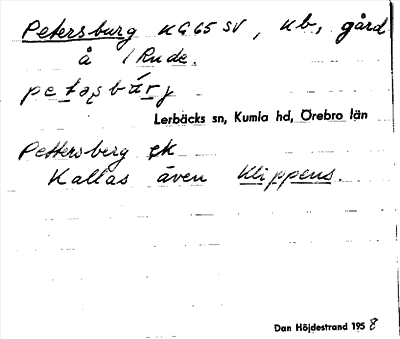 Petersburg KG65 SV, Kb, gård
å / Rude.
Lerbäcks sn, Kumla hd, Örebro län
Pettersberg EK
Kallas även Klippens.
Dan Höjdestrand 1958